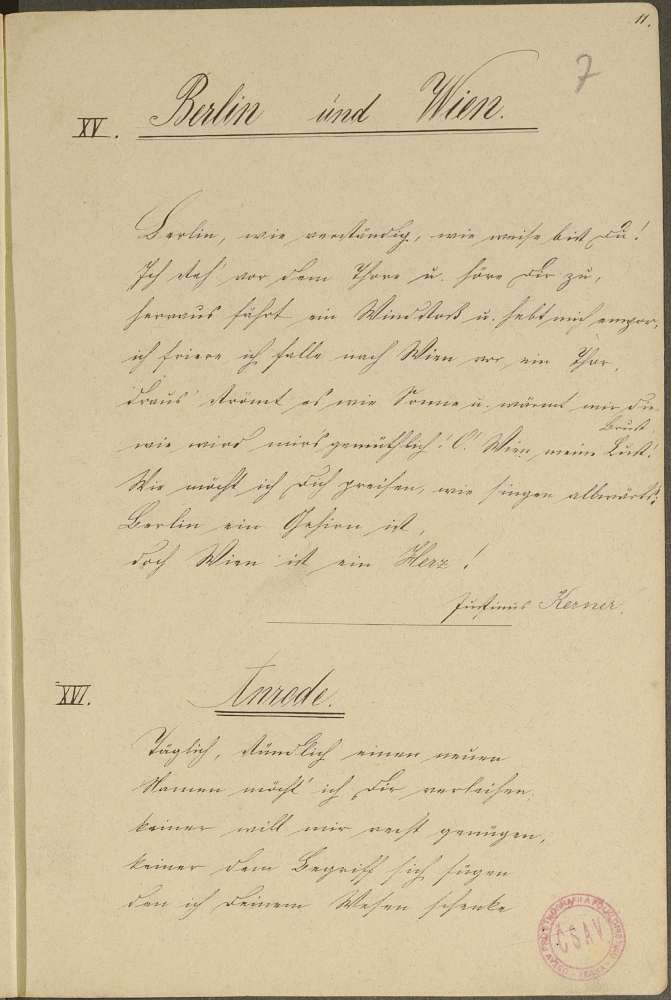 11.
7
XV. Berlin und Wien.
Berlin, wie verständig, wie weise bist Du!
Ich steh' vor dem Thore u. höre Dir zu,
herraus fährt ein Windstoß u. hebt mich empor,
ich friere ich falle nach Wien vor ein Thor,
draus strömt es wie Sonne u. wärmt mir die
Brust,
wie wird mir's gemüthlich! O! Wien, meine Lust!
Wie möcht ich Dich preisen, wie singen allwärts:
Berlin ein Gehirn ist,
doch Wien ist ein Herz!
Justinus Kerner.
XVI. Anrede.
Täglich, stündlich einen neuen
Namen möcht' ich Dir verleihen,
keiner will mir recht genügen,
keiner dem Begriff sich fügen
den ich Deinem Wesen schenke
ČSAV